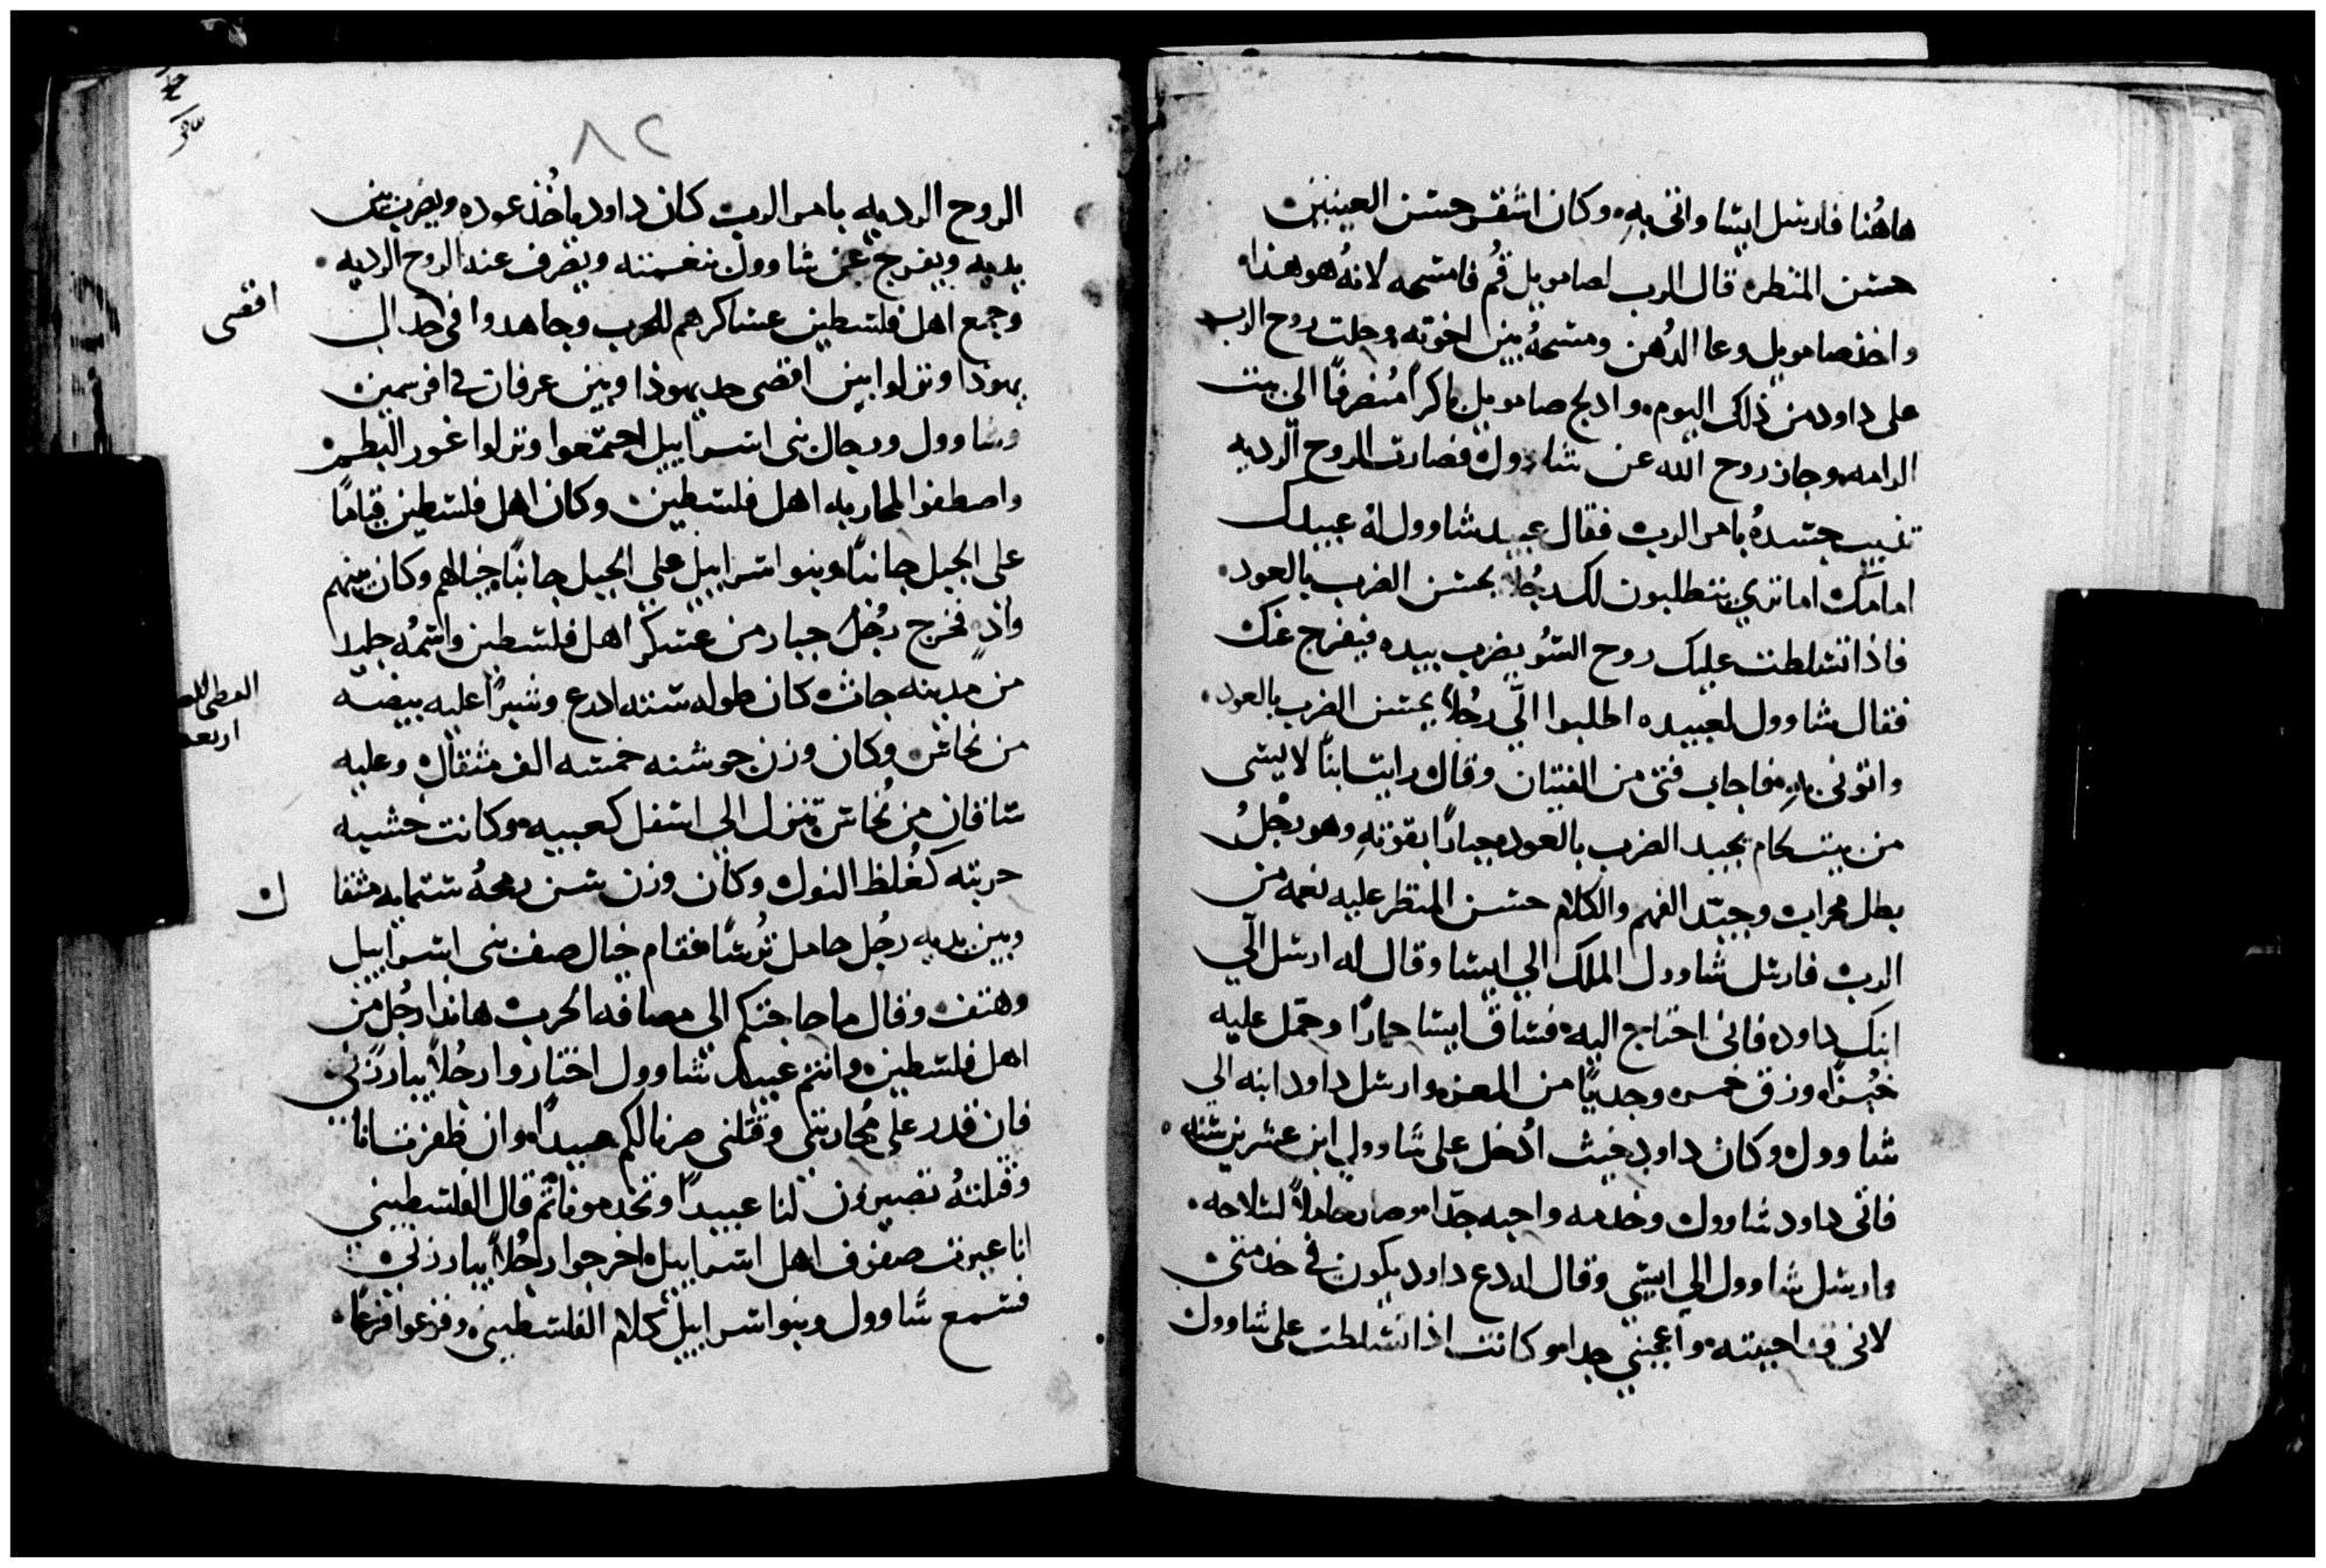 هاهُنا فارسل ايشا واتى بهِ وكان اشقر حسن العينين
حسن المنظره قال الرب لصامويل قُم فامسحه لانهُ هو هذا
واخذ صامويل وعا الدُهن ومسحهُ بين اخوته وحلت روح الرب
على داود من ذلك اليوم وادلج صامويل باكراً مُنصرفاً الي بيت
الرامه وجاز روح الله عن شاوول فصارت الروح الرديه
تذيب جسدهُ بامر الرب فقال عبيد شاوول لهُ عبيدك
امامك اما تري يتطلبون لك رجُلاً يحسن الضرب بالعود
فاذا تسلطت عليك روح السُو يضرب بيده فيفرج عنك
فقال شاوول لعبيده اطلبوا اليّ رجُلاً يحسن الضرب بالعود
واتوني بهِ فاجاب فتى من الفتيان وقال رايت ابناً لايسى
من بيت لحام يجيد الضرب بالعود جباراً بقوتهِ وهو رجُلُ
بطل محراب وجيّد الفهم والكلام حسن المنظر عليه نعمه من
الرب فارسل شاوول الملك الي ايشا وقال له ارسل اليّ
ابنك داود فاني احتاج اليه فساق ايشا حماراً وحمّل عليه
خُبزاً وزق خمر وجدياً من المعز وارسل داود ابنه الي
شاوول وكان داود حيث اُدخل على شاوول ابن عشرين سنه
فاتى داود شاوول وخدمه واحبه جدّا وصار حاملاً لسلاحه
وارسل شاوول الي ايسي وقال له دع داود يكون في خدمتي
لاني قد احببته واعجبني جدا وكانت اذا تسلطت على شاوول
٨٢
الروح الرديه بامر الرب كان داود ياخُذ عوده ويضرب بين
يديه ويفرج عن شاوول نغمته ويصرف عنه الروح الرديه
وجمع اهل فلسطين عساكرهم للحرب وجاهدوا في حد ال
اقصى
يهوذا ونزلوا بين اقصى حد يهوذا وبين عرفات في افرسمين
وشاوول ورجال بني اسراييل اجتمعوا ونزلوا غور البطم
واصطفوا لمحاربه اهل فلسطين وكان اهل فلسطين قياماً
على الجبل جانباً وبنو اسراييل على الجبل جانباً حيالهم وكان بينهم
وادٍ فخرج رجُل جبار من عسكر اهل فلسطين واسمُه جليد
من مدينه جاث كان طوله سته اذرع وشبراً عليه بيضه
اربعه
من نحاس وكان وزن جوشنه خمسه الف مثقال وعليه
ساقان من نُحاس تنزل الي اسفل كعبيه وكانت خشبه
حربته كغُلظ النول وكان وزن سن رمحهُ ستمايه مثقا
ل
وبين يديه رجُل حامل تُرساً فقام حيال صف بني اسراييل
وهتف وقال ما حاجتكم الي مصافه الحرب هانذا رجُل من
اهل فلسطين وانتم عبيد شاوول اختاروا رجُلاً يبارزني
فان قدر على مُحاربتي وقتلني صرنا لكم عبيداً وان ظفرت انا
وقتلتهُ تصيرون لنا عبيداً وتخدمونا ثم قال الفلسطيني
انا عيرت صفوف اهل اسراييل اخرجوا رجُلاً يبارزني
فسمع شاوول وبنو اسراييل كلام الفلسطيني وفزعوا فزعاً